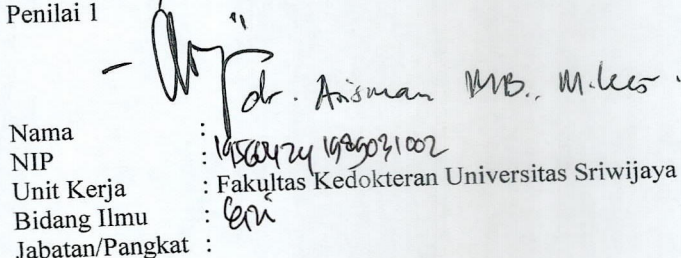 Penilai 1
dr. Arisman MB., M.Kes.
Nama :
NIP :
Unit Kerja : Fakultas Kedokteran Universitas Sriwijaya
Bidang Ilmu : Gizi
Jabatan/Pangkat :